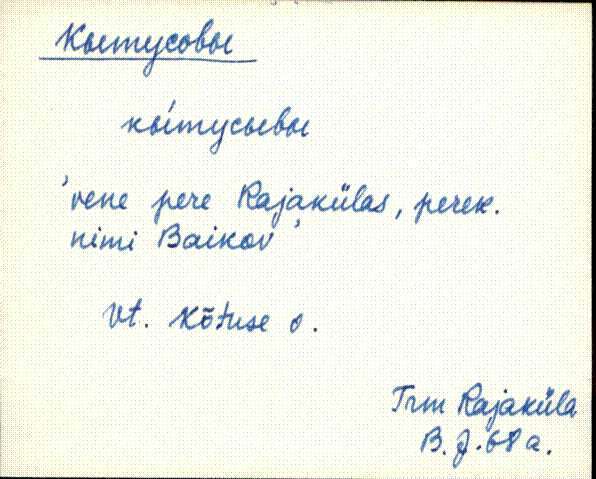 Кытусовы
кы́тусывы
'vene pere Rajakülas, perek.
nimi Baikov'
Vt. Kõtuse o.
Trm Rajaküla
B. J. 68 a.